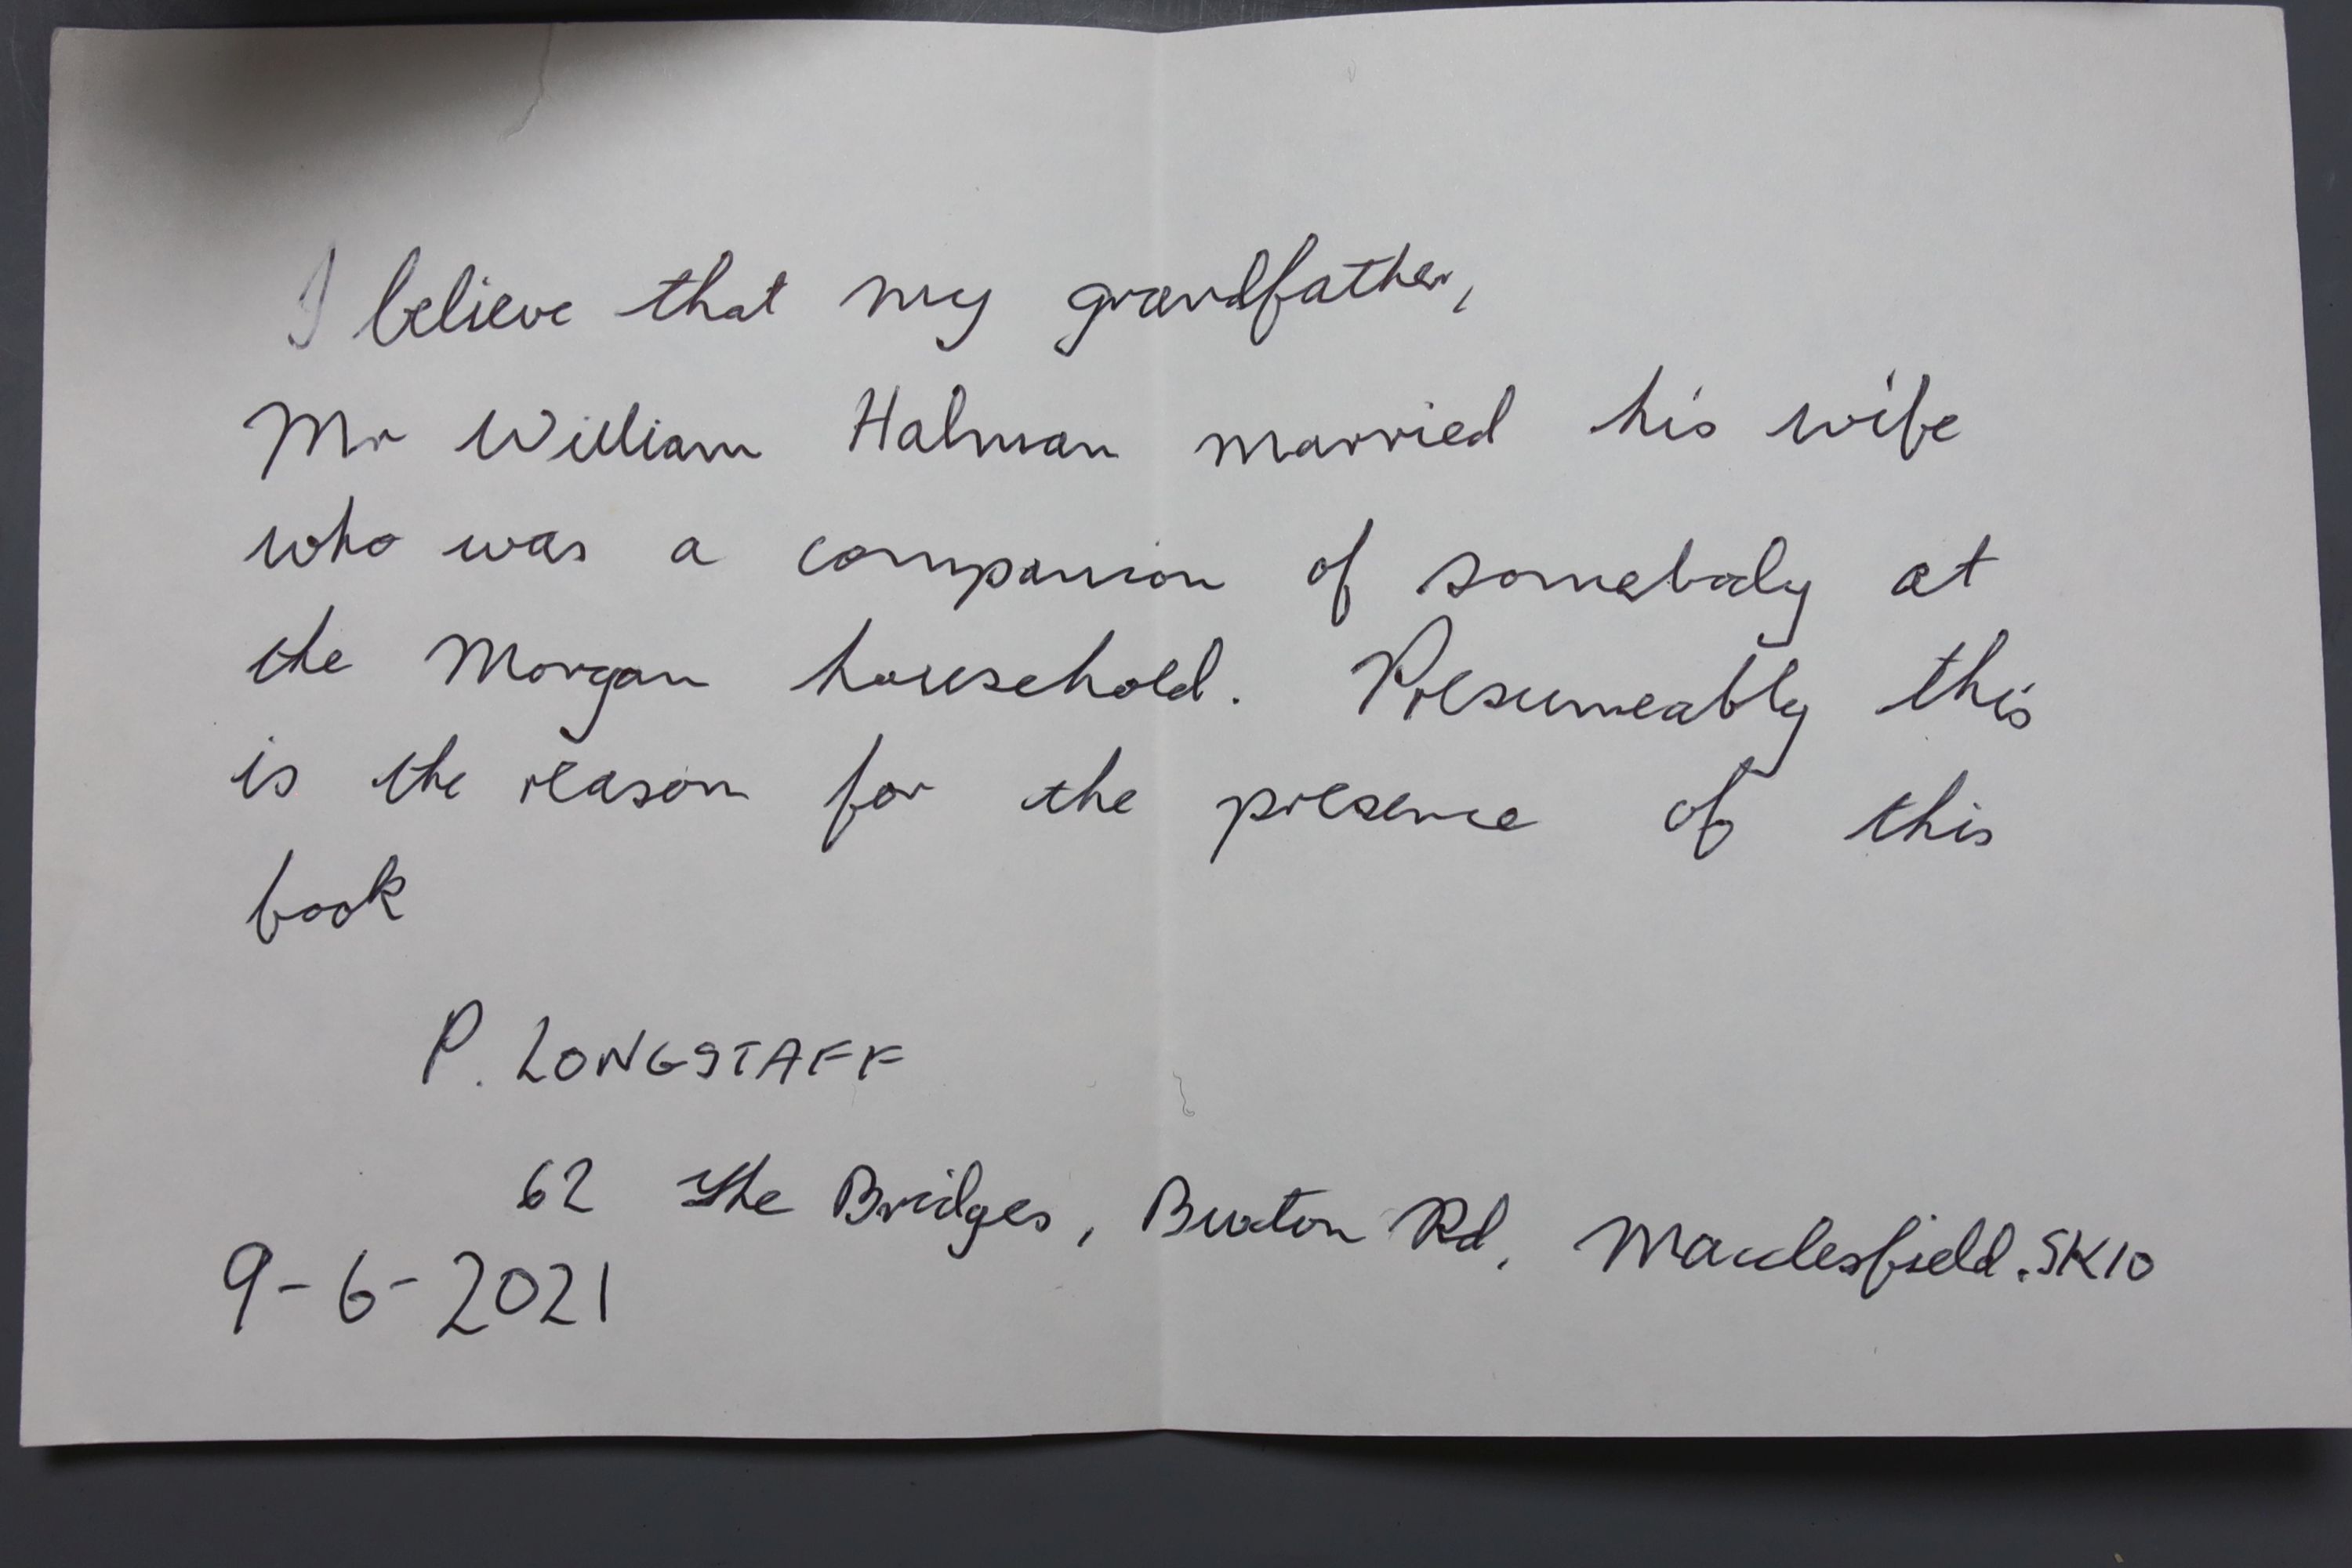 I believe that my grandfather,
Mr William Halman married his wife
who was a companion of somebody at
the Morgan household. Presumeably this
is the reason for the presence of this
book
P. LONGSTAFF
62 The Bridges, Buxton Rd, Macclesfield. SK10
9-6-2021